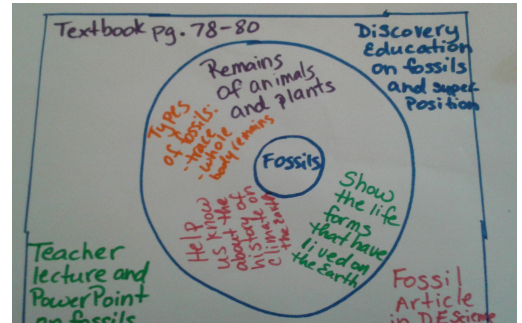 Textbook pg. 78-80
Discovery
Education
on fossils
and super
Position
Remains
of animals
and plants
Types
of fossils:
-trace
-whole
body remains
Fossils
Show
the life
forms
that have
lived on
the Earth
Help
us know
about the
history of
climate on
the Earth
Teacher
lecture and
PowerPoint
on fossils
Fossil
Article
in DE Science